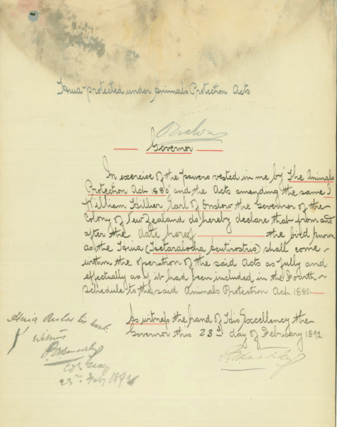 Huia protected under Animals Protection Acts
Onslow
Governor
In exercise of the powers vested in me by The Animals
Protection Act 1880 and the Acts amending the same I
William Hillier Earl of Onslow the Governor of the
Colony of New Zealand do hereby declare that from and
after the date hereof the bird known
as the Huia (Heteralocha acutirostris) shall come
within the operation of the said Acts as fully and
effectually as if it had been included in the Fourth
Schedule to the said Animals Protection Act 1880
As witness the hand of His Excellency the
Governor this 23rd day of February 1892.
23rd Feby 1892